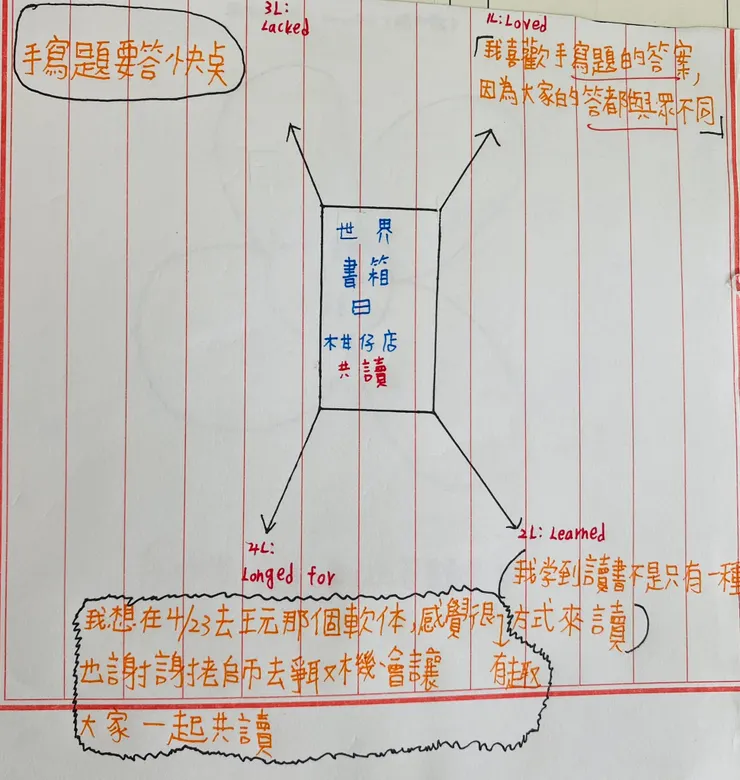 3L:
Lacked
手寫題要答快点
1L: Loved
「我喜歡手寫題的答案,
因為大家的答都與眾不同」
世界
書箱
日
柑仔店
共讀
2L: Learned
(我学到讀書不是只有一種
方式來讀)
4L:
Longed for
我想在4/23去玩那個軟体,感覺很
有趣
也謝謝老師去爭取機會讓
大家一起共讀